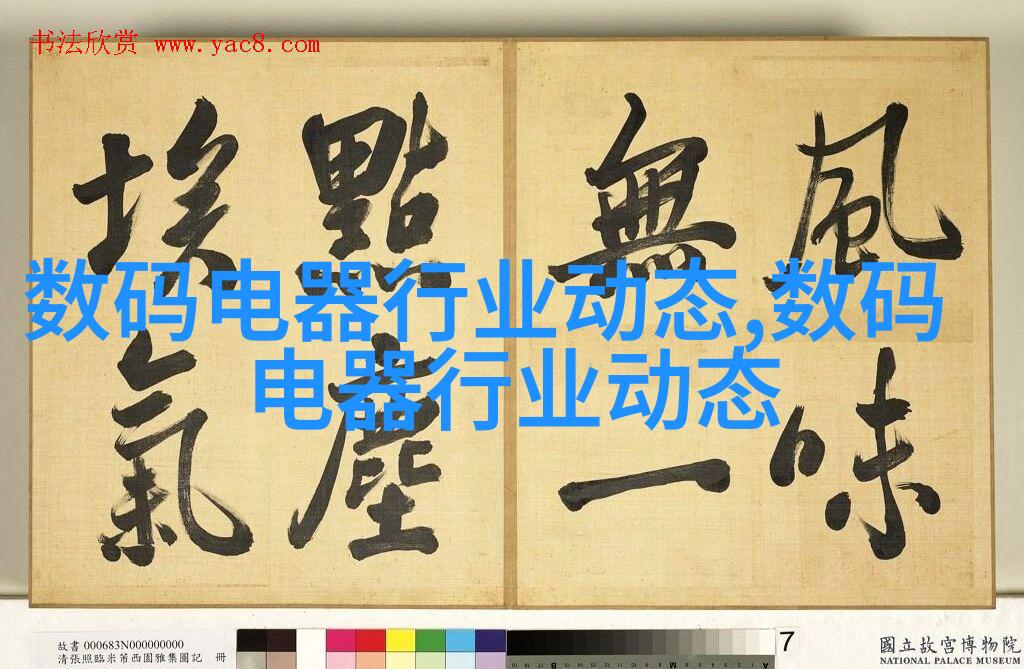 书法欣赏 www.yac8.com
風味
無一
點塵
埃氣
数码电器行业动态,数码
电器行业动态
故書 000683N000000000
清張照臨米芾西園雅集圖記 冊
7
國立故宮博物院
NATIONAL PALACE MUSEUM